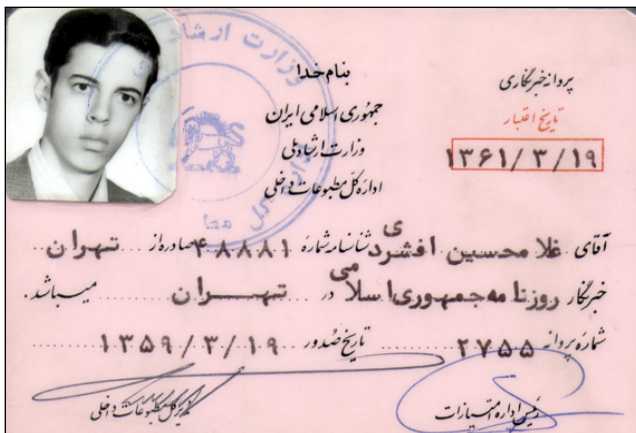 بنام خدا
جمهوری اسلامی ایران
وزارت ارشاد ملی
اداره کل مطبوعات داخلی
پروانه خبرنگاری
تاریخ اعتبار
۱۳۶۱/۳/۱۹
وزارت ارشاد
آقای غلامحسین افشردی شناسنامه شماره ۴۸۸۸۱ صادره از تهران
خبرنگار روزنامه جمهوری اسلامی در تهران میباشد.
شماره پروانه ۲۷۵۵ تاریخ صدور ۱۳۵۹/۳/۱۹
رئیس اداره امتیازات
مدیر کل مطبوعات داخلی